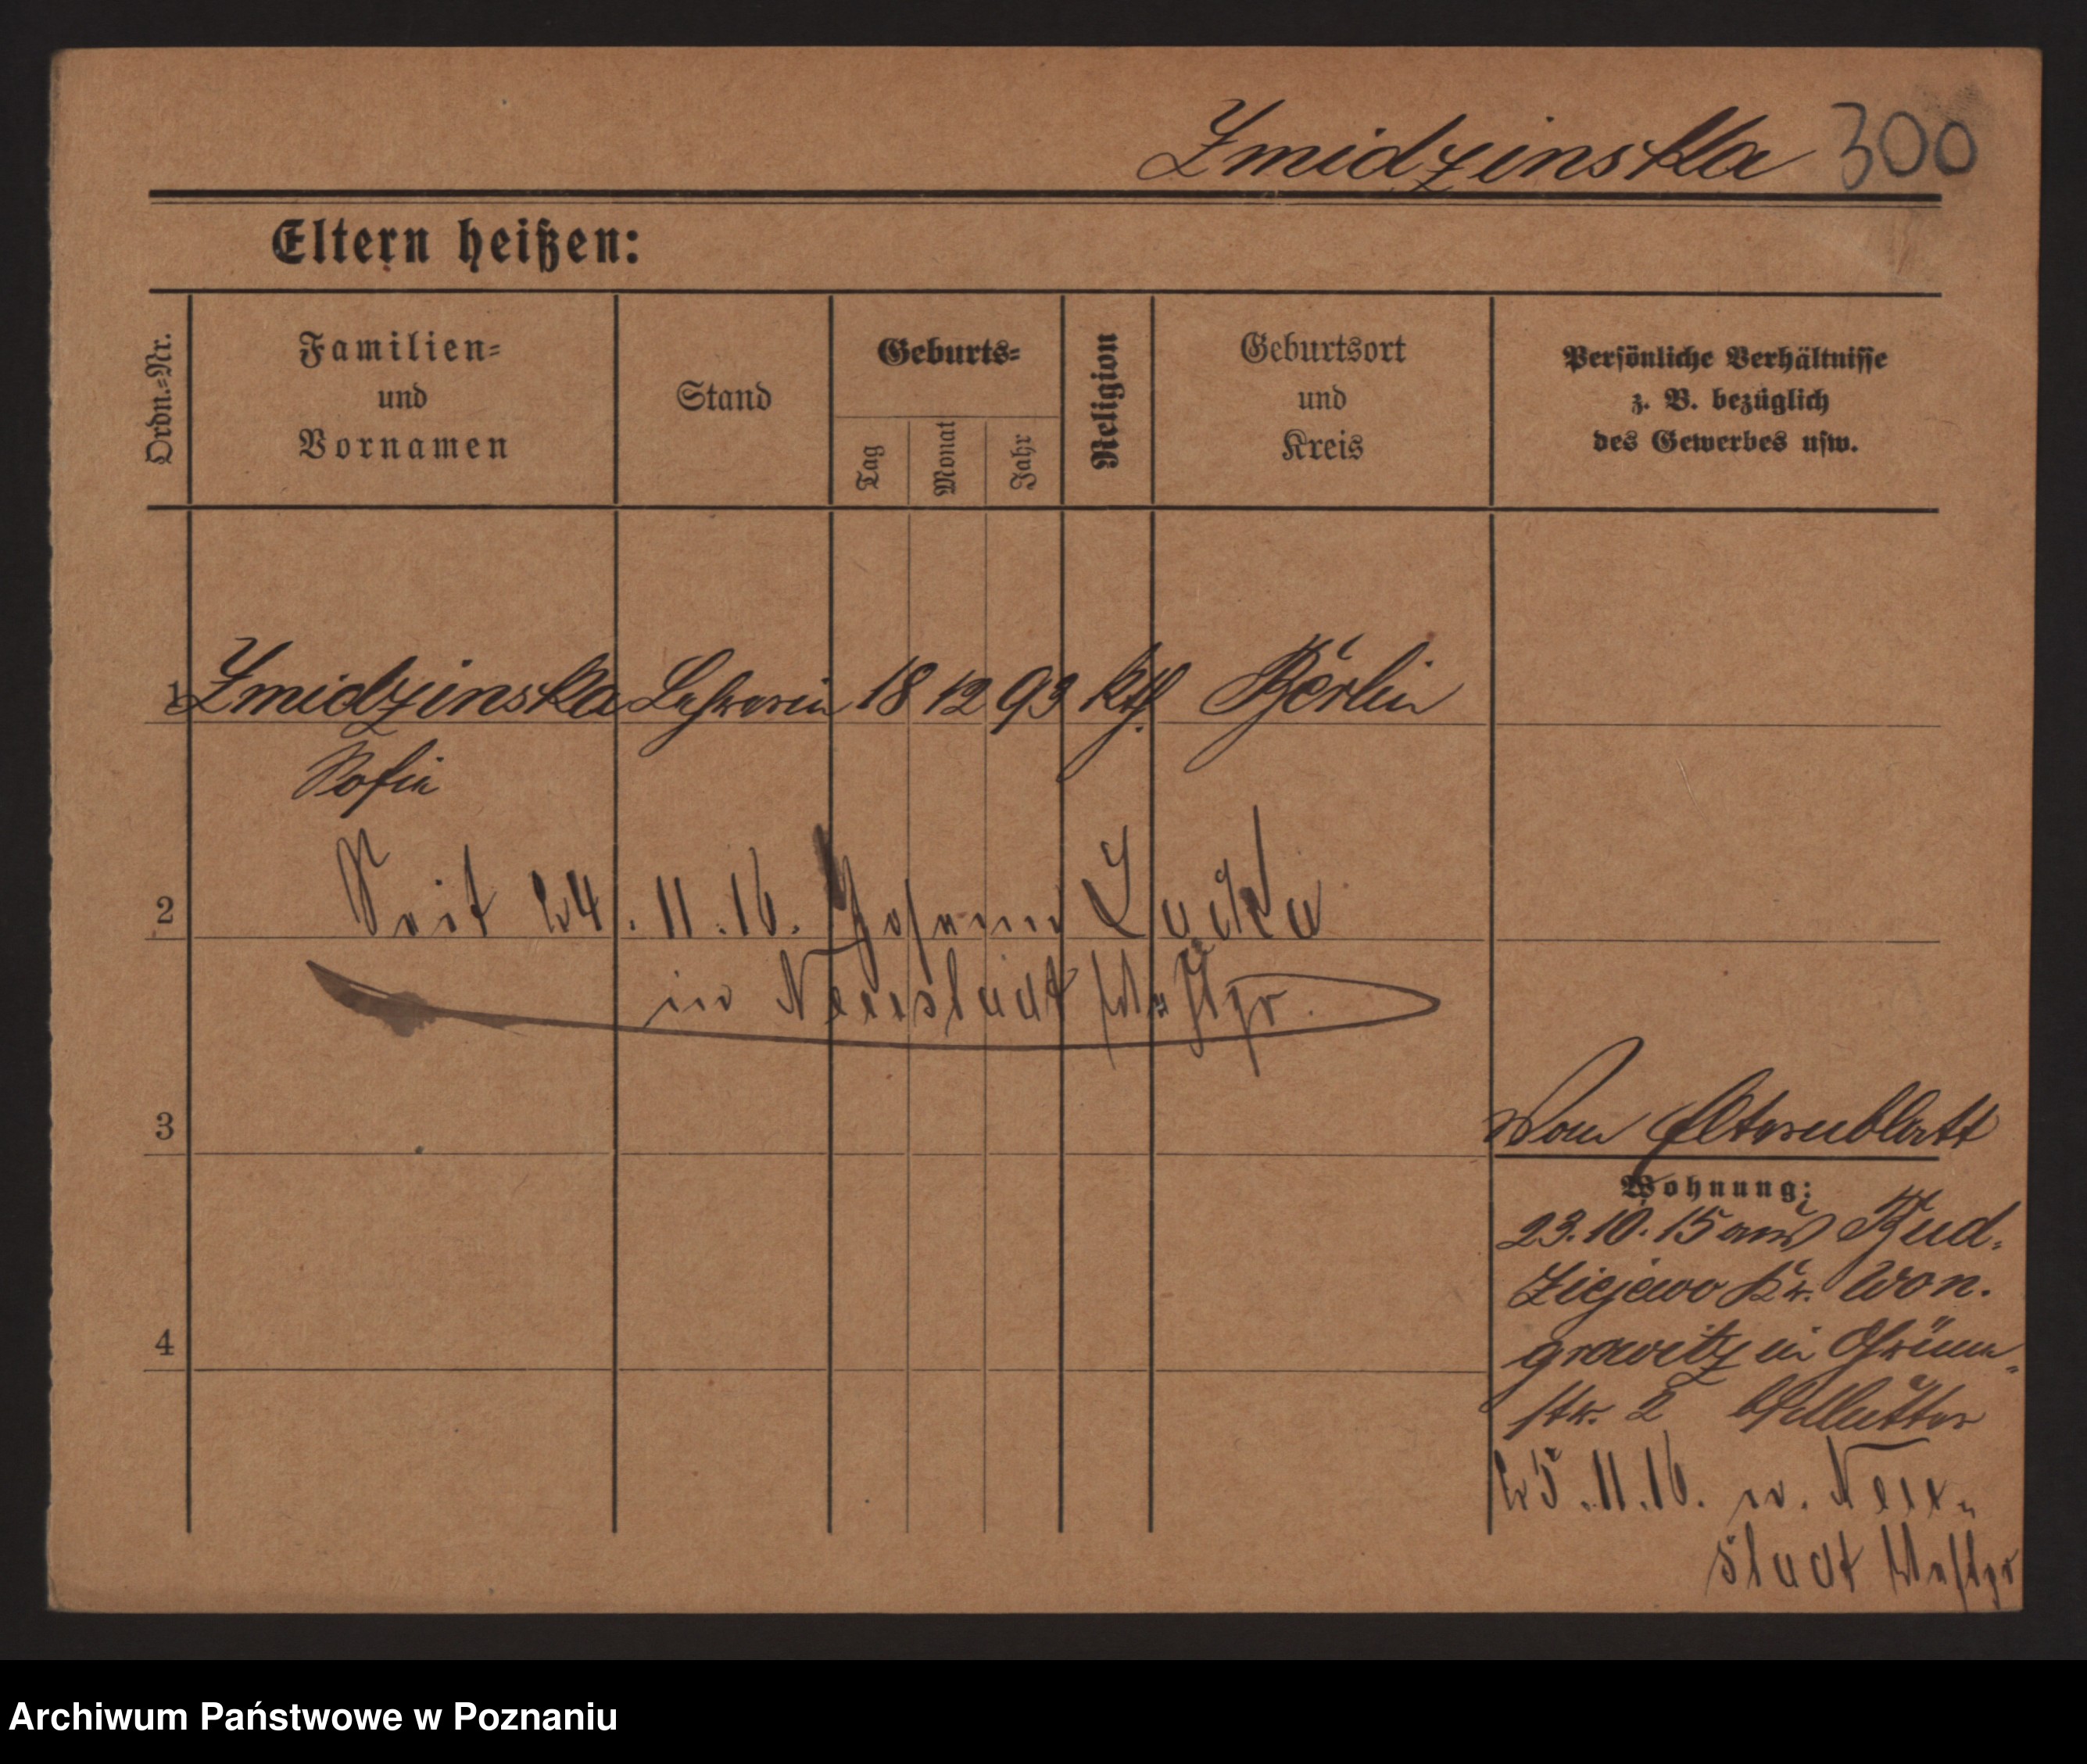 Zmidzinska 300
Eltern heißen:
Ordn.-Nr.
Familien-
und
Vornamen
Stand
Geburts-
Tag
Monat
Jahr
Religion
Geburtsort
und
Kreis
Persönliche Verhältnisse
z. B. bezüglich
des Gewerbes usw.
1 Zmidzinska Lehrerin 18 12 93 kth. Berlin
Sofie
2 Seit 24.11.16. Johann
in Neustadt Westpr.
3
Vom Elternblatt
Wohnung:
23.10.15 aus Bud-
ziejewo Kr. Won-
growitz in Grün-
4
str. 2 b/Mutter
25.11.16. n. Neu-
stadt Westpr
Archiwum Państwowe w Poznaniu